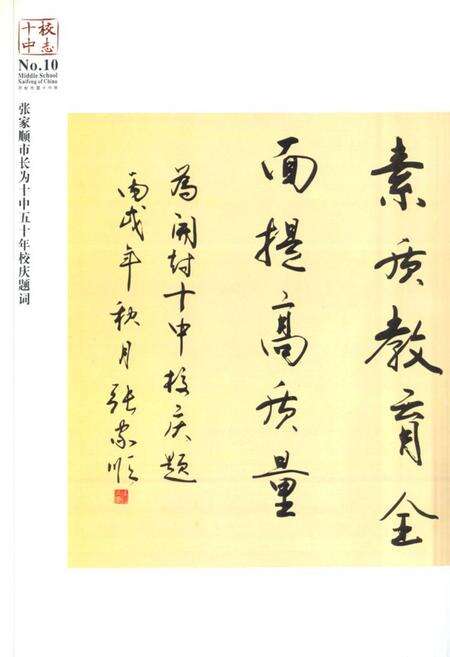 十中校志
No.10
Middle School
Kaifeng of China
张家顺市长为十中五十年校庆题词
素质教育全
面提高质量
為開封十中校庆题
丙戌年秋月张家顺